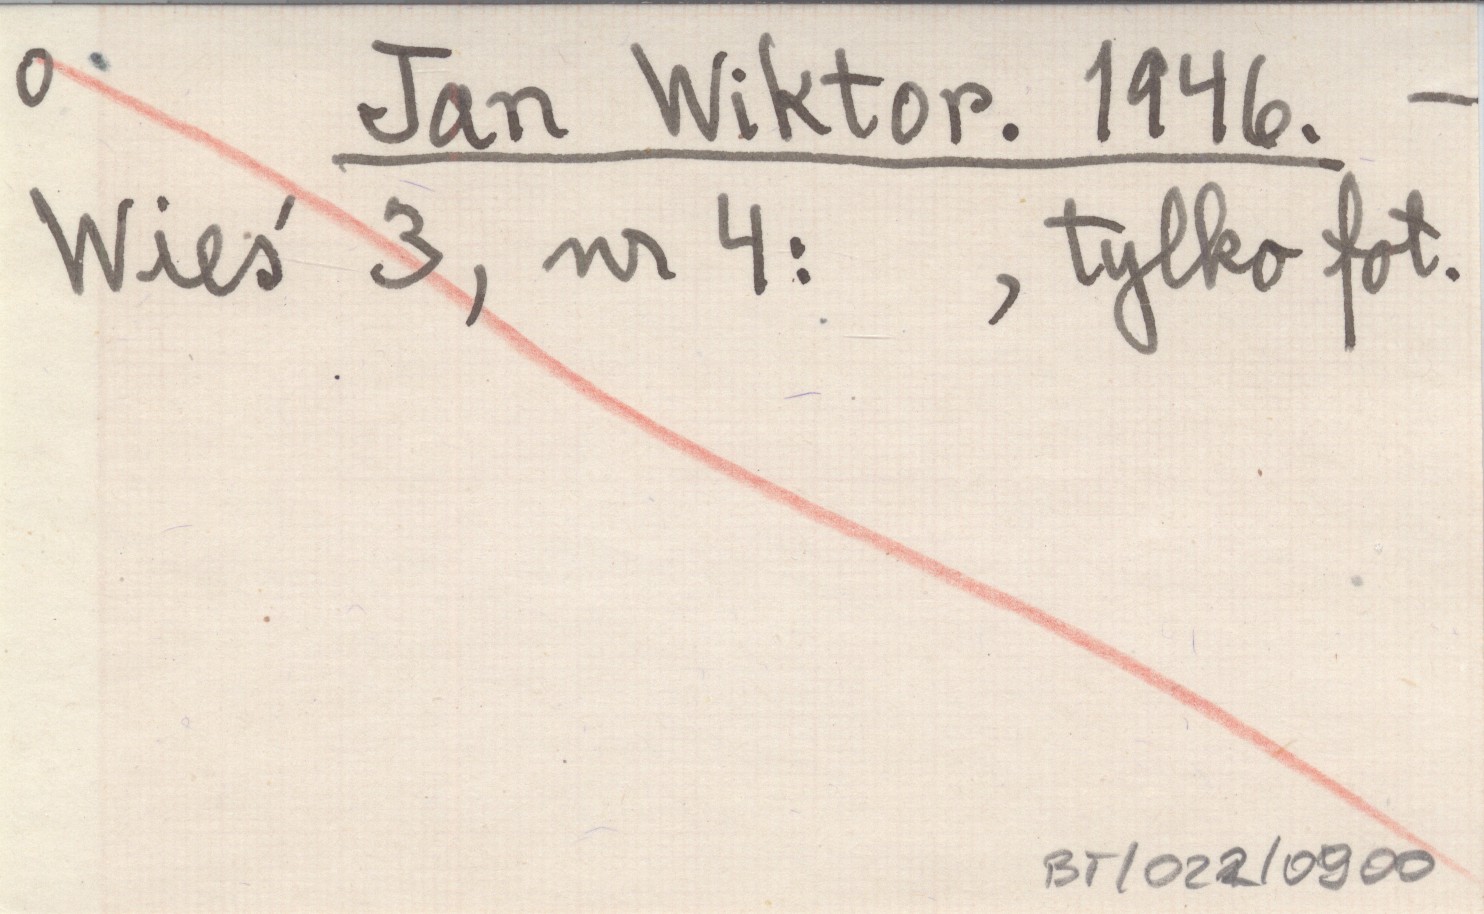 0 Jan Wiktor. 1946. —
Wieś 3, nr 4: , tylko fot.
BT/022/0900